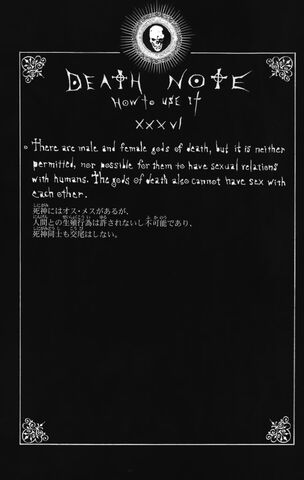 DEATH NOTE
HOW TO USE IT
XXXVI
There are male and female gods of death, but it is neither
permitted, nor possible for them to have sexual relations
with humans. The gods of death also cannot have sex with
each other.
死神にはオス・メスがあるが、
人間との生殖行為は許されないし不可能であり、
死神同士も交尾はしない。